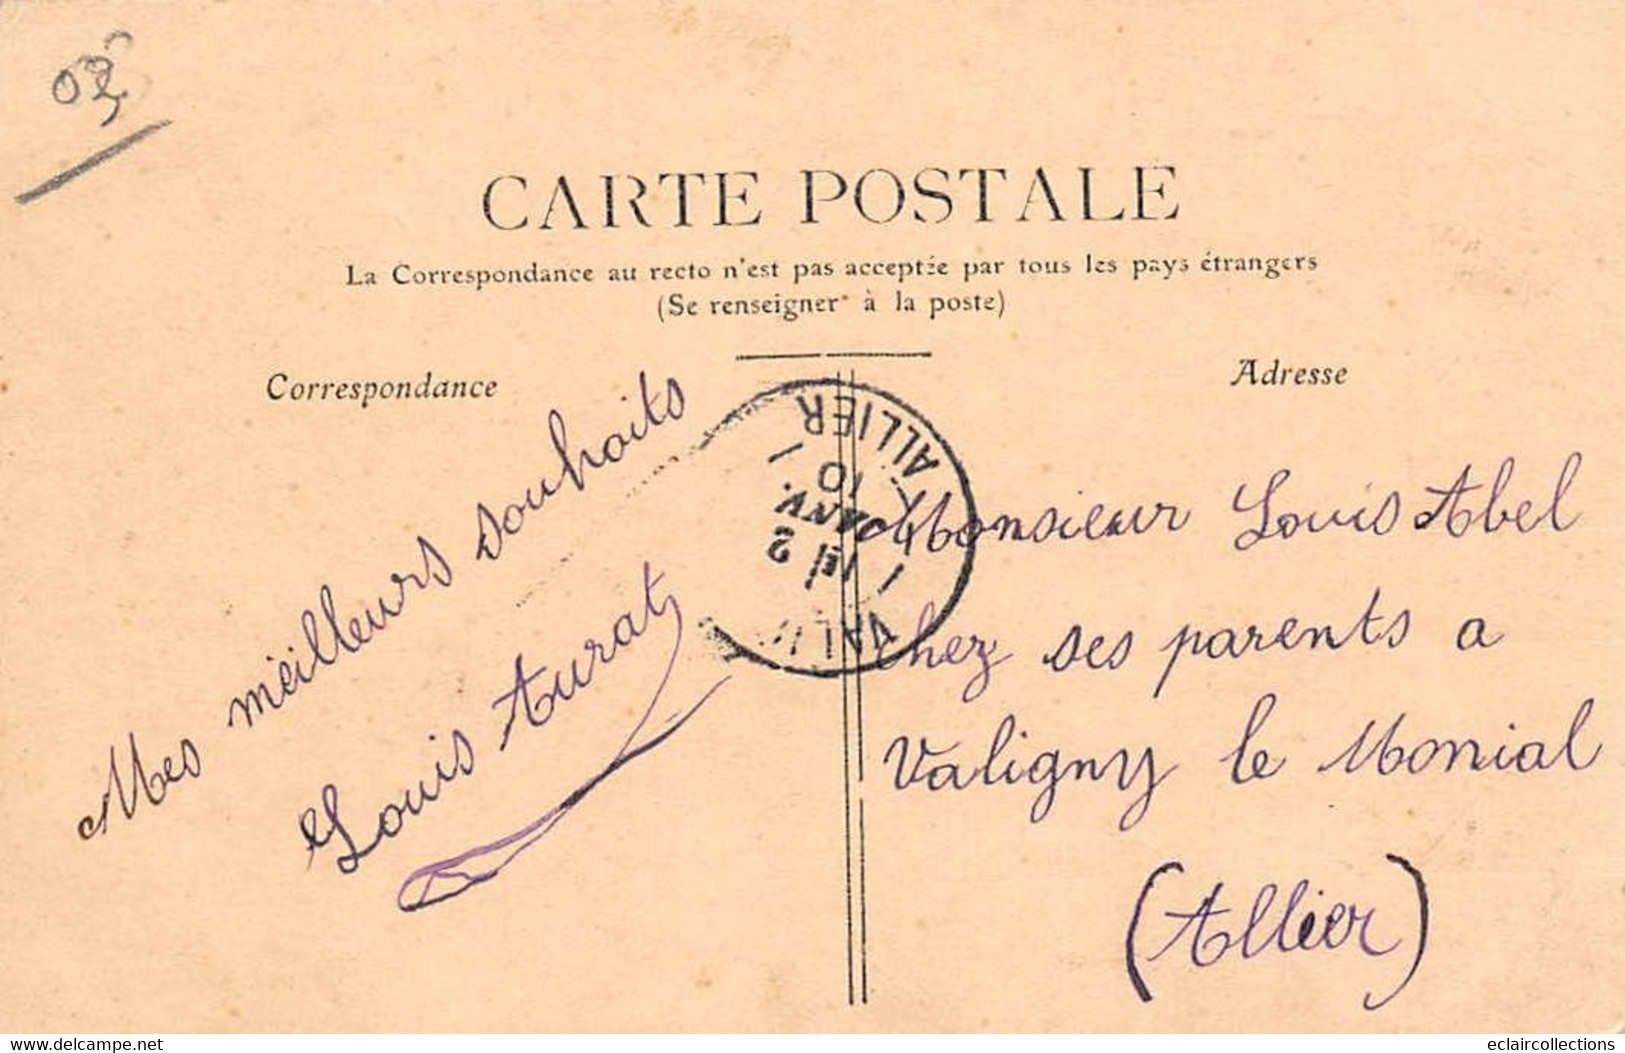 03
CARTE POSTALE
La Correspondance au recto n'est pas acceptée par tous les pays étrangers
(Se renseigner à la poste)
Correspondance
Adresse
Mes meilleurs souhaits
Louis Aurat
ALLIER
2
JANV.
10
Monsieur Louis Abel
chez ses parents a
Valigny le Monial
(Allier)
www.delcampe.net
eclaircollections